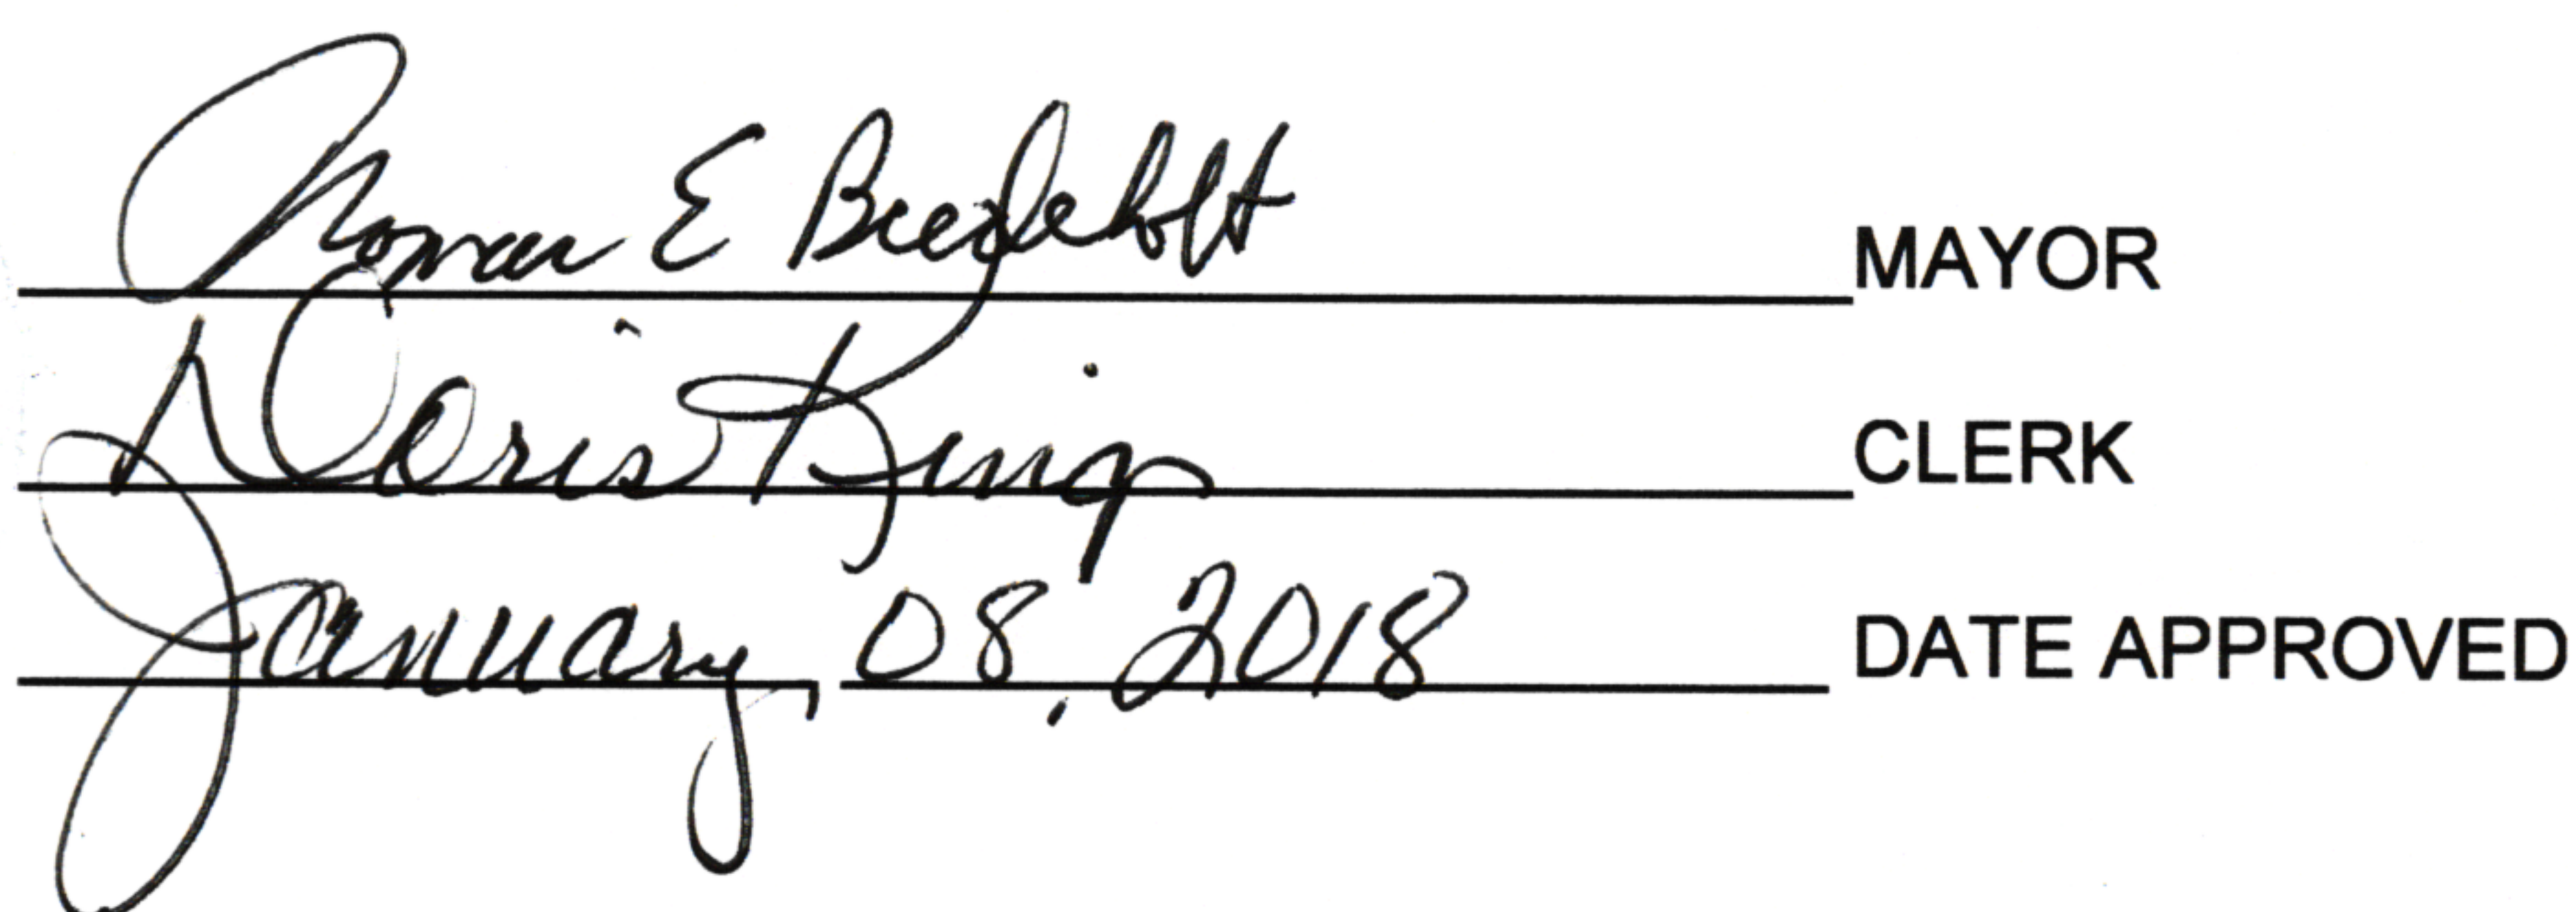 Norman E Bredeholt MAYOR
Doris King CLERK
January, 08, 2018 DATE APPROVED